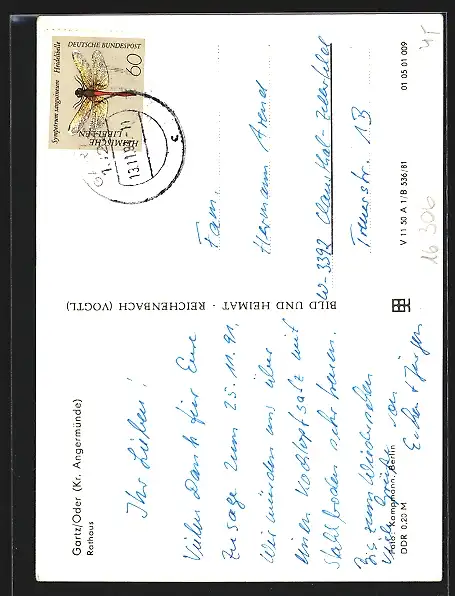 Gartz/Oder (Kr. Angermünde)
Rathaus
Ihr Lieben!
Vielen Dank für Eure
Zusage zum 25.11.91.
Wir würden uns über
einen Kochtopfsatz mit
Stahlboden sehr freuen.
Bis zum Wiedersehen
viele Grüße von
Foto: Kampmann, Berlin
DDR 0,20 M
BILD UND HEIMAT · REICHENBACH (VOGTL)
DEUTSCHE BUNDESPOST
60
Sympetrum sanguineum Heidelibelle
HEIMISCHE
LIBELLEN
13.11.91
c
Fam.
Hermann Arend
W-3392 Clausthal-Zellerfeld
1B
V 11 50 A 1/B 536/81
01 05 01 009
16 306